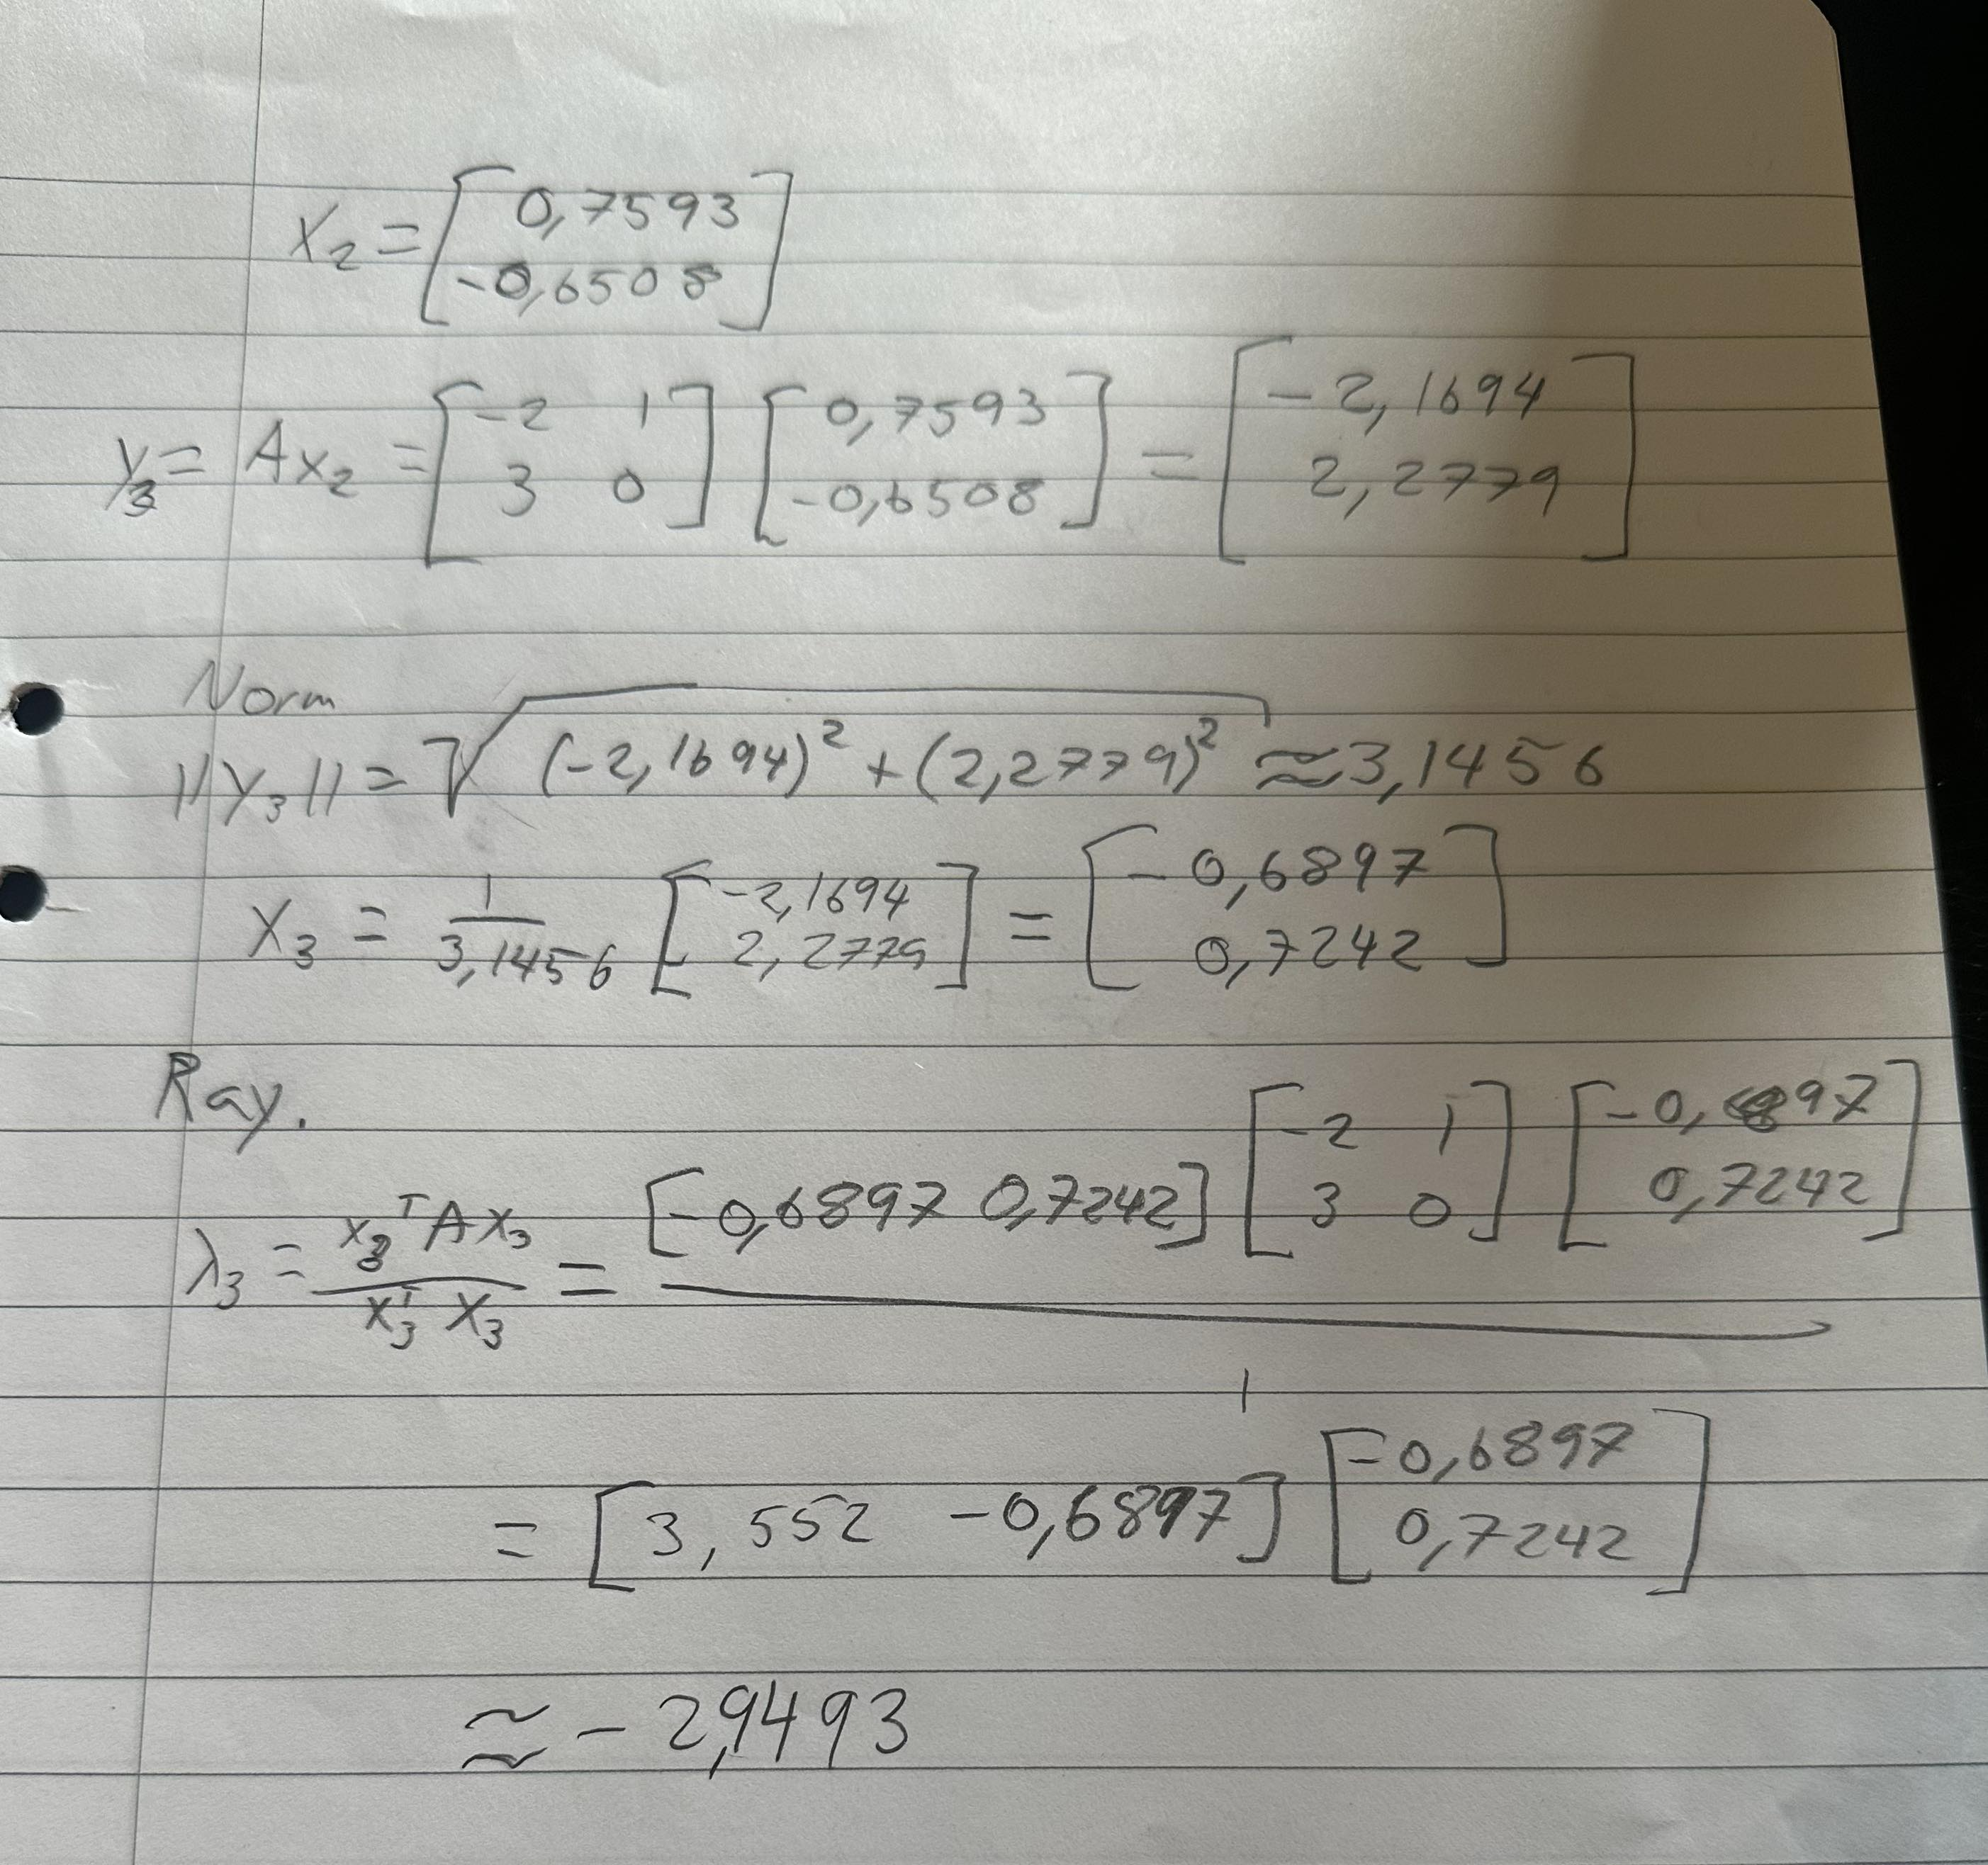 x₂ = [0,7593
-0,6508]
y₃ = Ax₂ = [-2 1
3 0] [0,7593
-0,6508] = [-2,1694
2,2779]
Norm
||y₃|| = √((-2,1694)² + (2,2779)²) ≈ 3,1456
x₃ = 1/3,1456 [-2,1694
2,2779] = [-0,6897
0,7242]
Ray.
λ₃ = x₃ᵀAx₃ / x₃ᵀx₃ = [-0,6897 0,7242] [-2 1
3 0] [-0,6897
0,7242] / 1
= [3,552 -0,6897] [-0,6897
0,7242]
≈ -2,9493